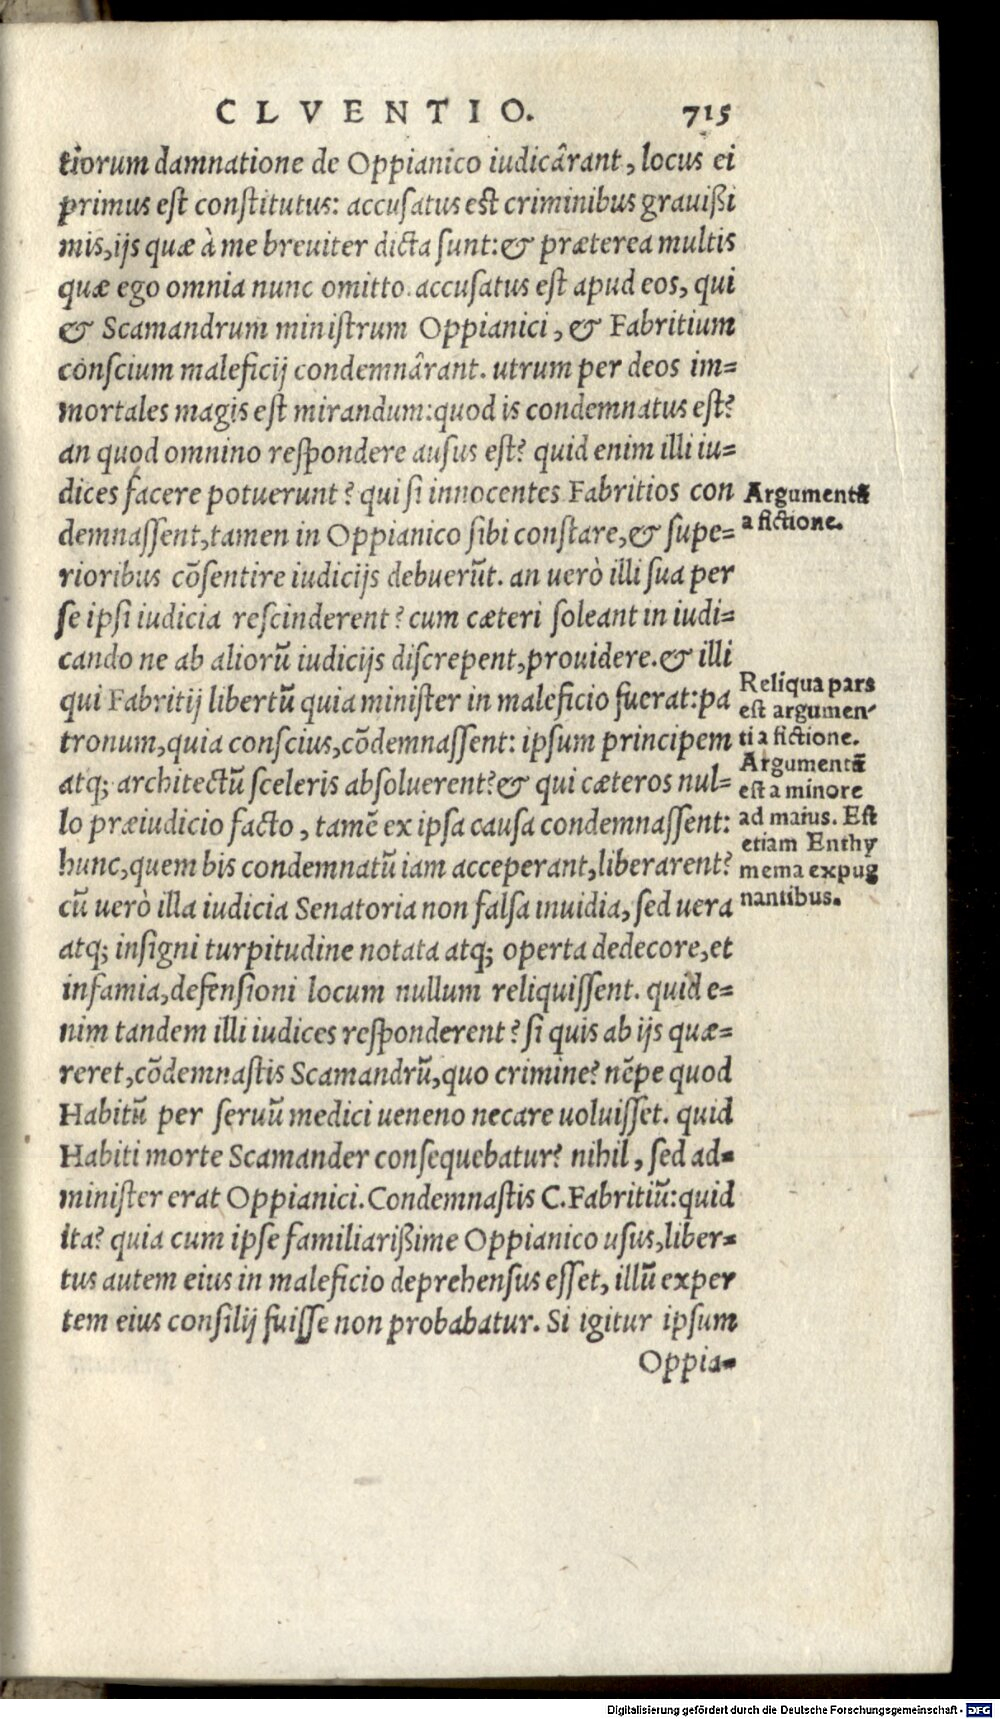 CLVENTIO. 715
tiorum damnatione de Oppianico iudicârant, locus ei
primus est constitutus: accusatus est criminibus grauißi
mis, ijs quæ à me breuiter dicta sunt: & præterea multis
quæ ego omnia nunc omitto. accusatus est apud eos, qui
& Scamandrum ministrum Oppianici, & Fabritium
conscium maleficij condemnârant. utrum per deos im=
mortales magis est mirandum: quod is condemnatus est?
an quod omnino respondere ausus est? quid enim illi iu=
dices facere potuerunt? qui si innocentes Fabritios con
demnassent, tamen in Oppianico sibi constare, & supe=
rioribus cõsentire iudicijs debuerũt. an uerò illi sua per
se ipsi iudicia rescinderent? cum cæteri soleant in iudi=
cando ne ab aliorũ iudicijs discrepent, prouidere. & illi
qui Fabritij libertũ quia minister in maleficio fuerat: pa
tronum, quia conscius, cõdemnassent: ipsum principem
atq; architectũ sceleris absoluerent? & qui cæteros nul=
lo præiudicio facto, tamẽ ex ipsa causa condemnassent:
hunc, quem bis condemnatũ iam acceperant, liberarent?
cũ uerò illa iudicia Senatoria non falsa inuidia, sed uera
atq; insigni turpitudine notata atq; operta dedecore, et
infamia, defensioni locum nullum reliquissent. quid e=
nim tandem illi iudices responderent? si quis ab ijs quæ=
reret, cõdemnastis Scamandrũ, quo crimine? nẽpe quod
Habitũ per seruũ medici ueneno necare uoluisset. quid
Habiti morte Scamander consequebatur? nihil, sed ad=
minister erat Oppianici. Condemnastis C. Fabritiũ: quid
ita? quia cum ipse familiarißime Oppianico usus, liber=
tus autem eius in maleficio deprehensus esset, illũ exper
tem eius consilij fuisse non probabatur. Si igitur ipsum
Oppia=
Argumentũ
a fictione.
Reliqua pars
est argumen-
ti a fictione.
Argumentũ
est a minore
ad maius. Est
etiam Enthy
mema expug
nantibus.
Digitalisierung gefördert durch die Deutsche Forschungsgemeinschaft - DFG